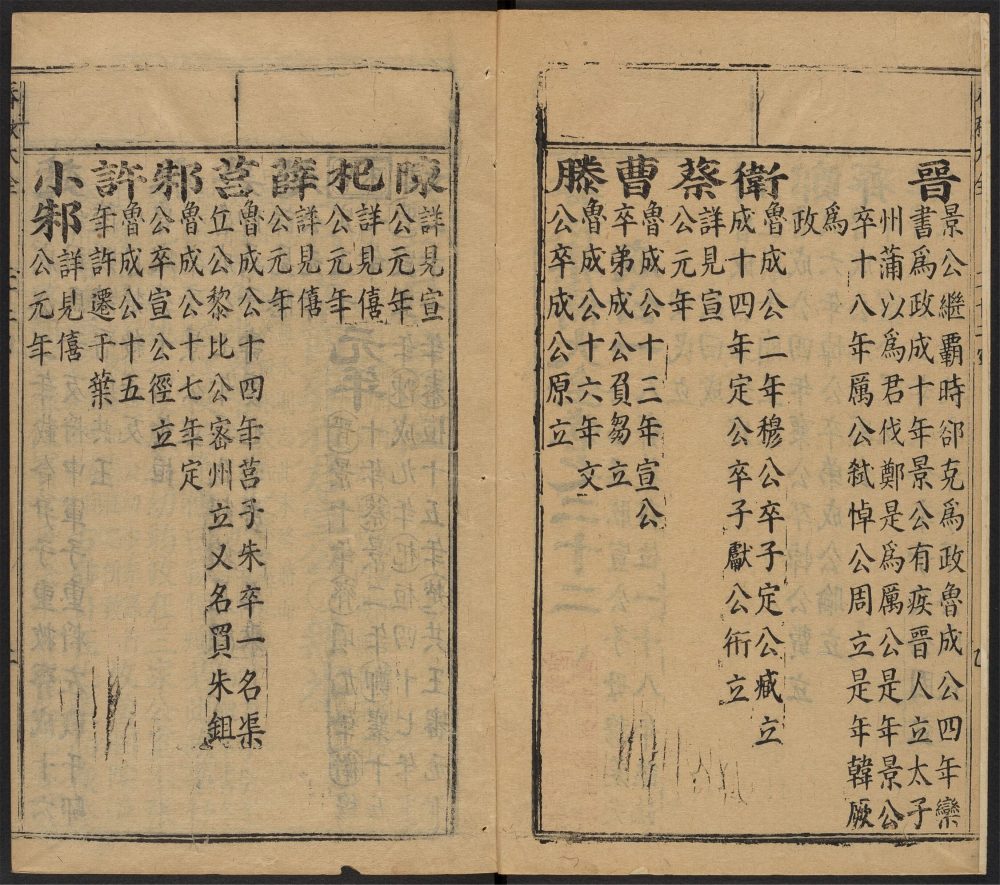 晉景公繼霸時郤克爲政魯成公四年欒
書爲政成十年景公有疾晉人立太子
州蒲以爲君伐鄭是爲厲公是年景公
卒十八年厲公弒悼公周立是年韓厥
爲
政
衛魯成公二年穆公卒子定公臧立
成十四年定公卒子獻公衎立
蔡詳見宣
公元年
曹魯成公十三年宣公
卒弟成公負芻立
滕魯成公十六年文
公卒成公原立
陳詳見宣
公元年
杞詳見僖
公元年
薛詳見僖
公元年
莒魯成公十四年莒子朱卒一名渠
丘公黎比公密州立又名買朱鉏
邾魯成公十七年定
公卒宣公徑立
許魯成公十五
年許遷于葉
小邾詳見僖
公元年